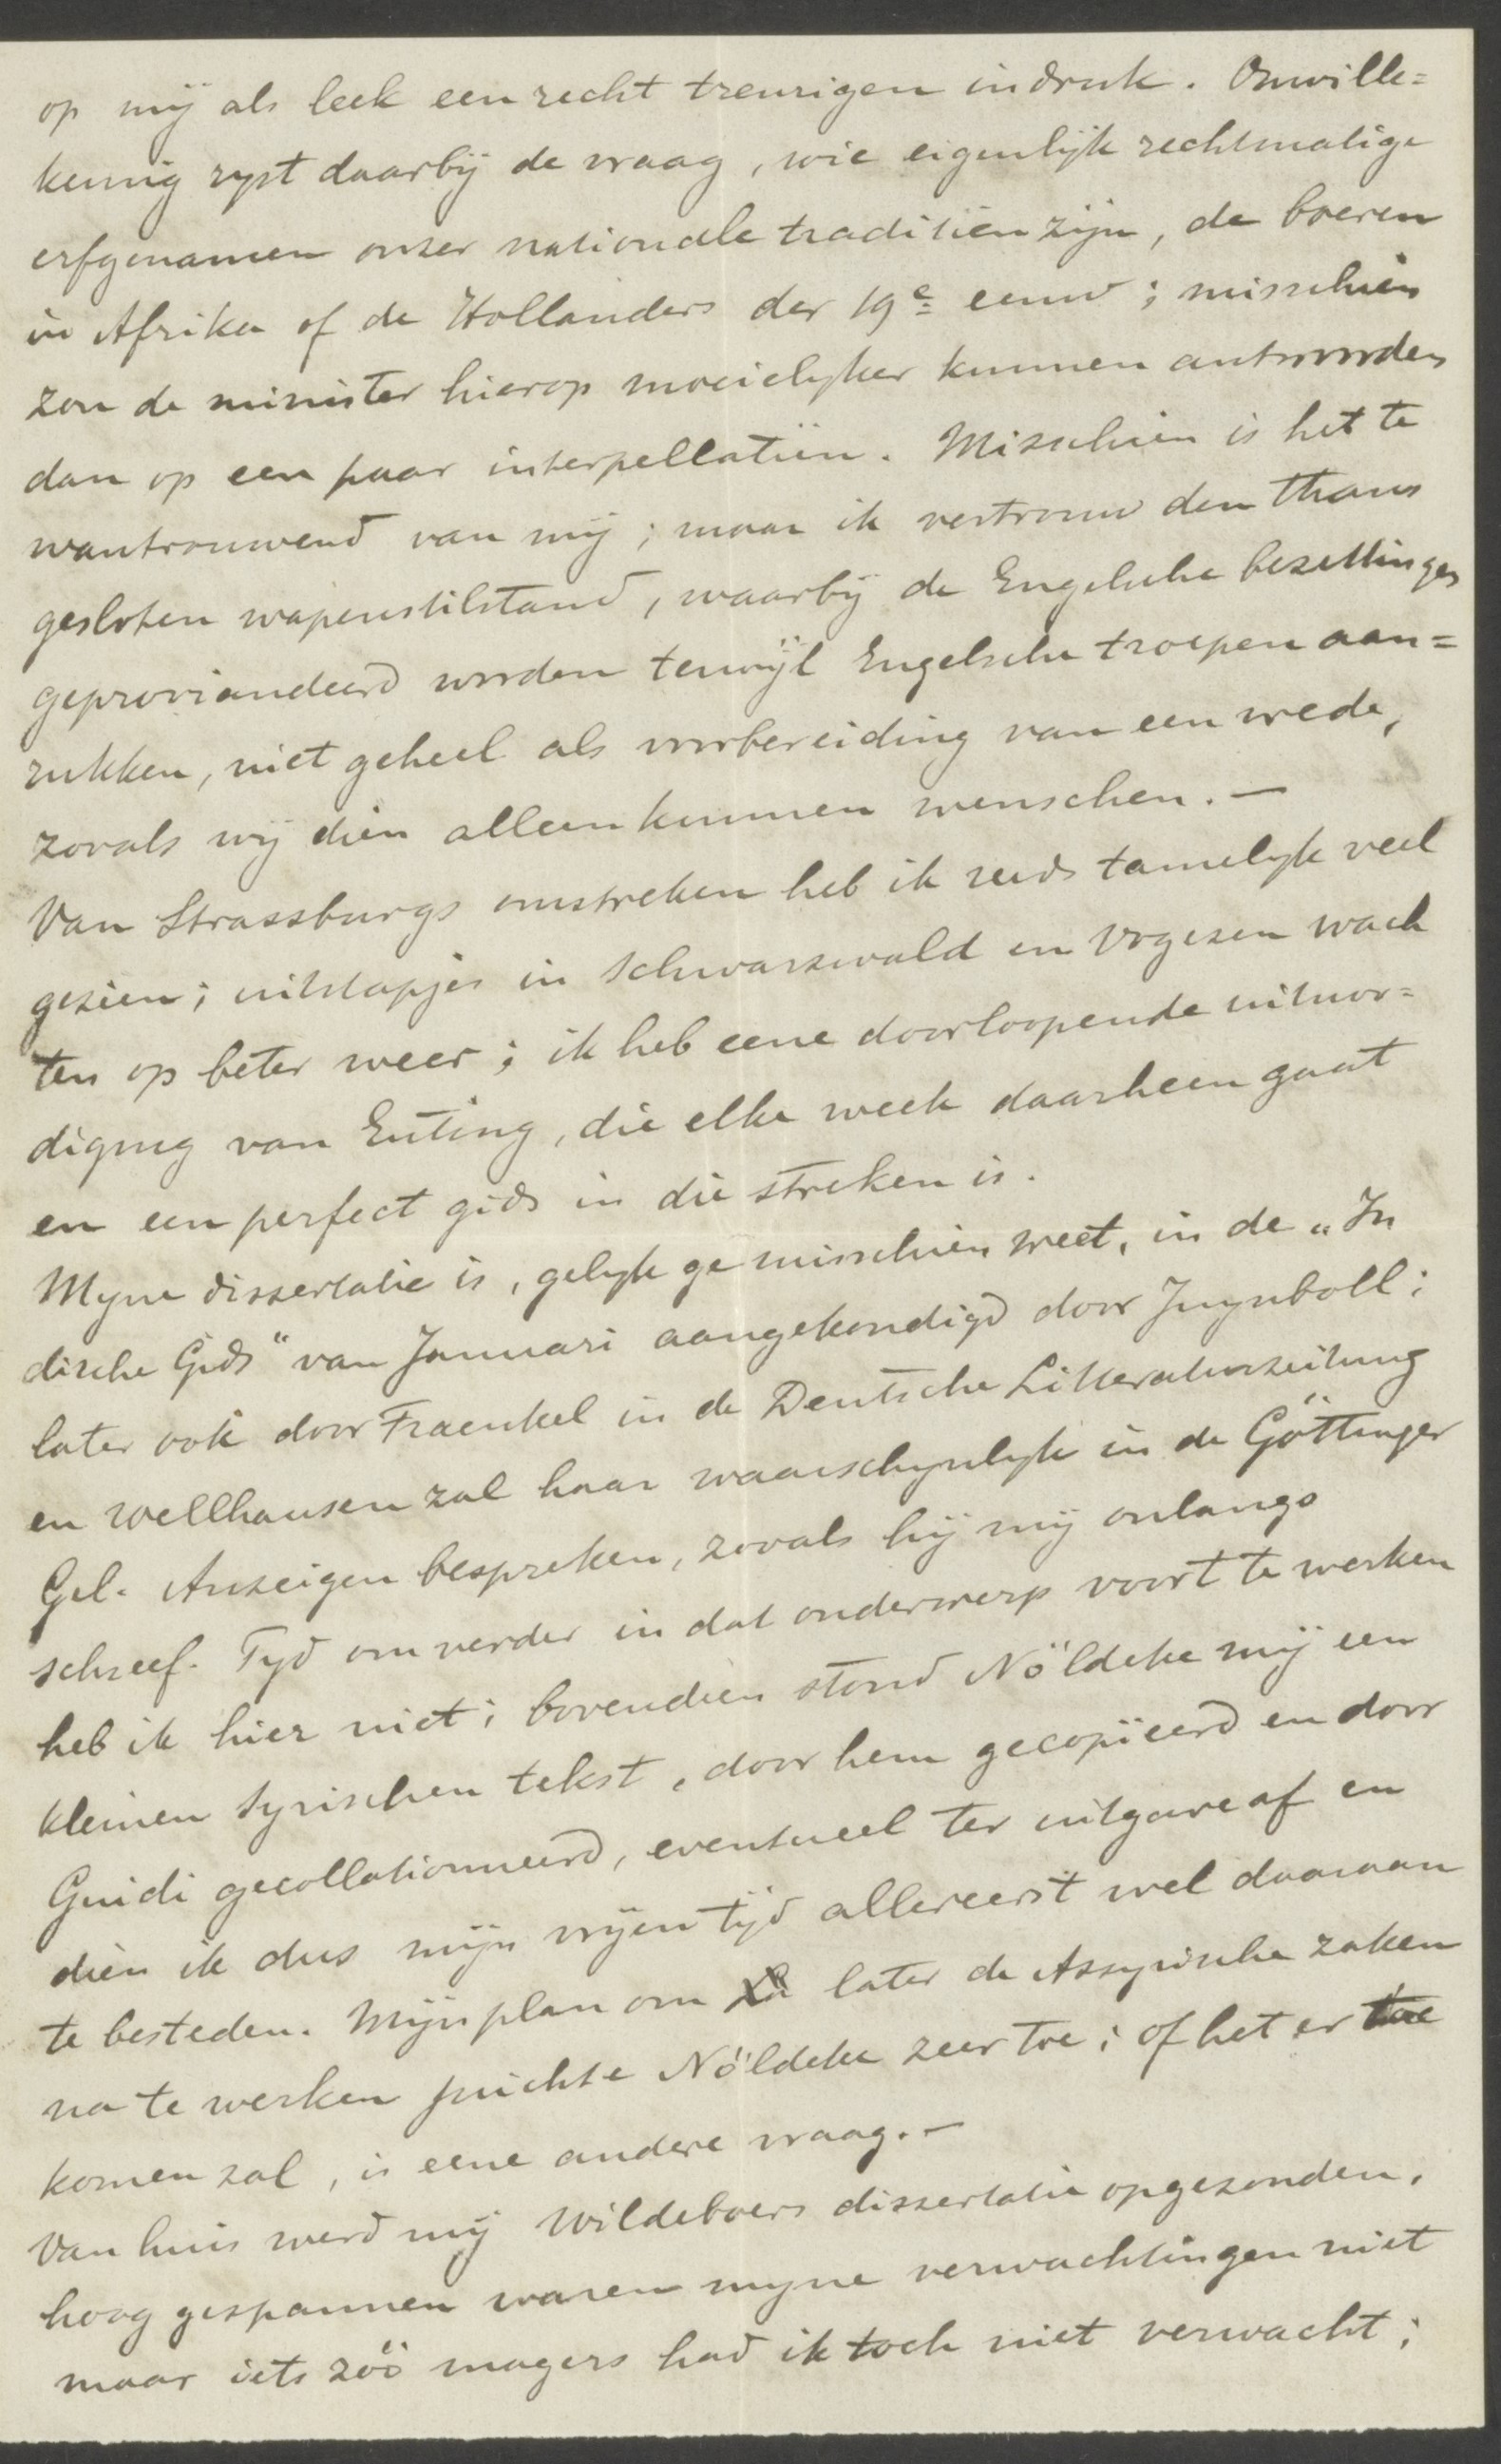 op mij als leek een recht treurigen indruk. Onwille=
keurig ryst daarbij de vraag, wie eigenlijk rechtmatige
erfgenamen onzer nationale traditiën zijn, de boeren
in Afrika of de Hollanders der 19e eeuw; misschien
zou de minister hierop moeielyker kunnen antwoorden
dan op een paar interpellatiën. Misschien is het te
wantrouwend van mij; maar ik vertrouw den thans
gesloten wapenstilstand, waarbij de Engelsche bezettingen
geproviandeerd worden terwijl Engelsche troepen aan=
rukken, niet geheel als voorbereiding van een vrede,
zooals wij dien alleen kunnen wenschen. —
Van Strassburgs omstreken heb ik reeds tamelyk veel
gezien; uitstapjes in Schwarzwald en Vogezen wach
ten op beter weer; ik heb eene doorloopende uitnoo=
digung van Euting, die elke week daarheen gaat
en een perfect gids in die streken is.
Myne dissertatie is, gelyk ge misschien weet, in de „In
dische Gids" van Januari aangekondigd door Juynboll;
later ook door Fraenkel in de Deutsche Litteraturzeitung
en Wellhausen zal haar waarschynlyk in de Göttinger
Gel. Anzeigen bespreken, zooals hij mij onlangs
schreef. Tyd om verder in dat onderwerp voort te werken
heb ik hier niet; bovendien stond Nöldeke mij een
kleinen Syrischen tekst, door hem gecopiëerd en door
Guidi gecollationneerd, eventueel ter uitgave af en
dien ik dus mijn vrijen tijd allereerst wel daaraan
te besteden. Mijn plan om later de Assyrische zaken
na te werken juichte Nöldeke zeer toe; of het er toe
komen zal, is eene andere vraag. —
Van huis werd mij Wildeboers dissertatie opgezonden.
hoog gespannen waren myne verwachtingen niet
maar iets zóó magers had ik toch niet verwacht;